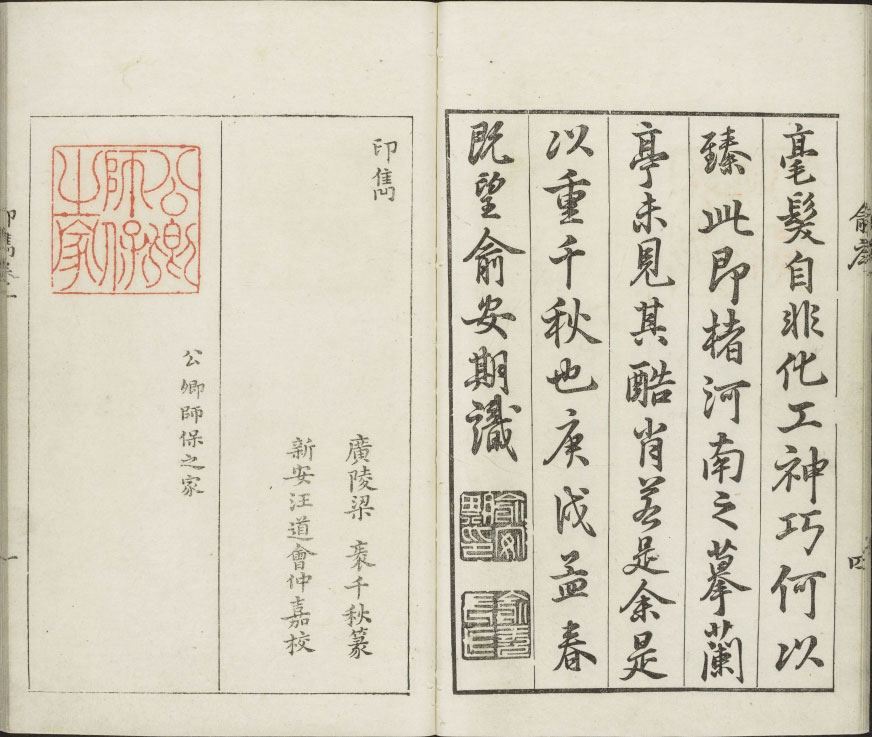 俞序
四
毫髮自非化工神巧何以
臻此即楮河南之摹蘭
亭未見其酷肖若是余是
以重千秋也庚戌孟春
既望俞安期識
俞安期印
印雋
廣陵梁袠千秋篆
新安汪道會仲嘉校
公卿師保之家
公卿師保之家
印雋卷一
一